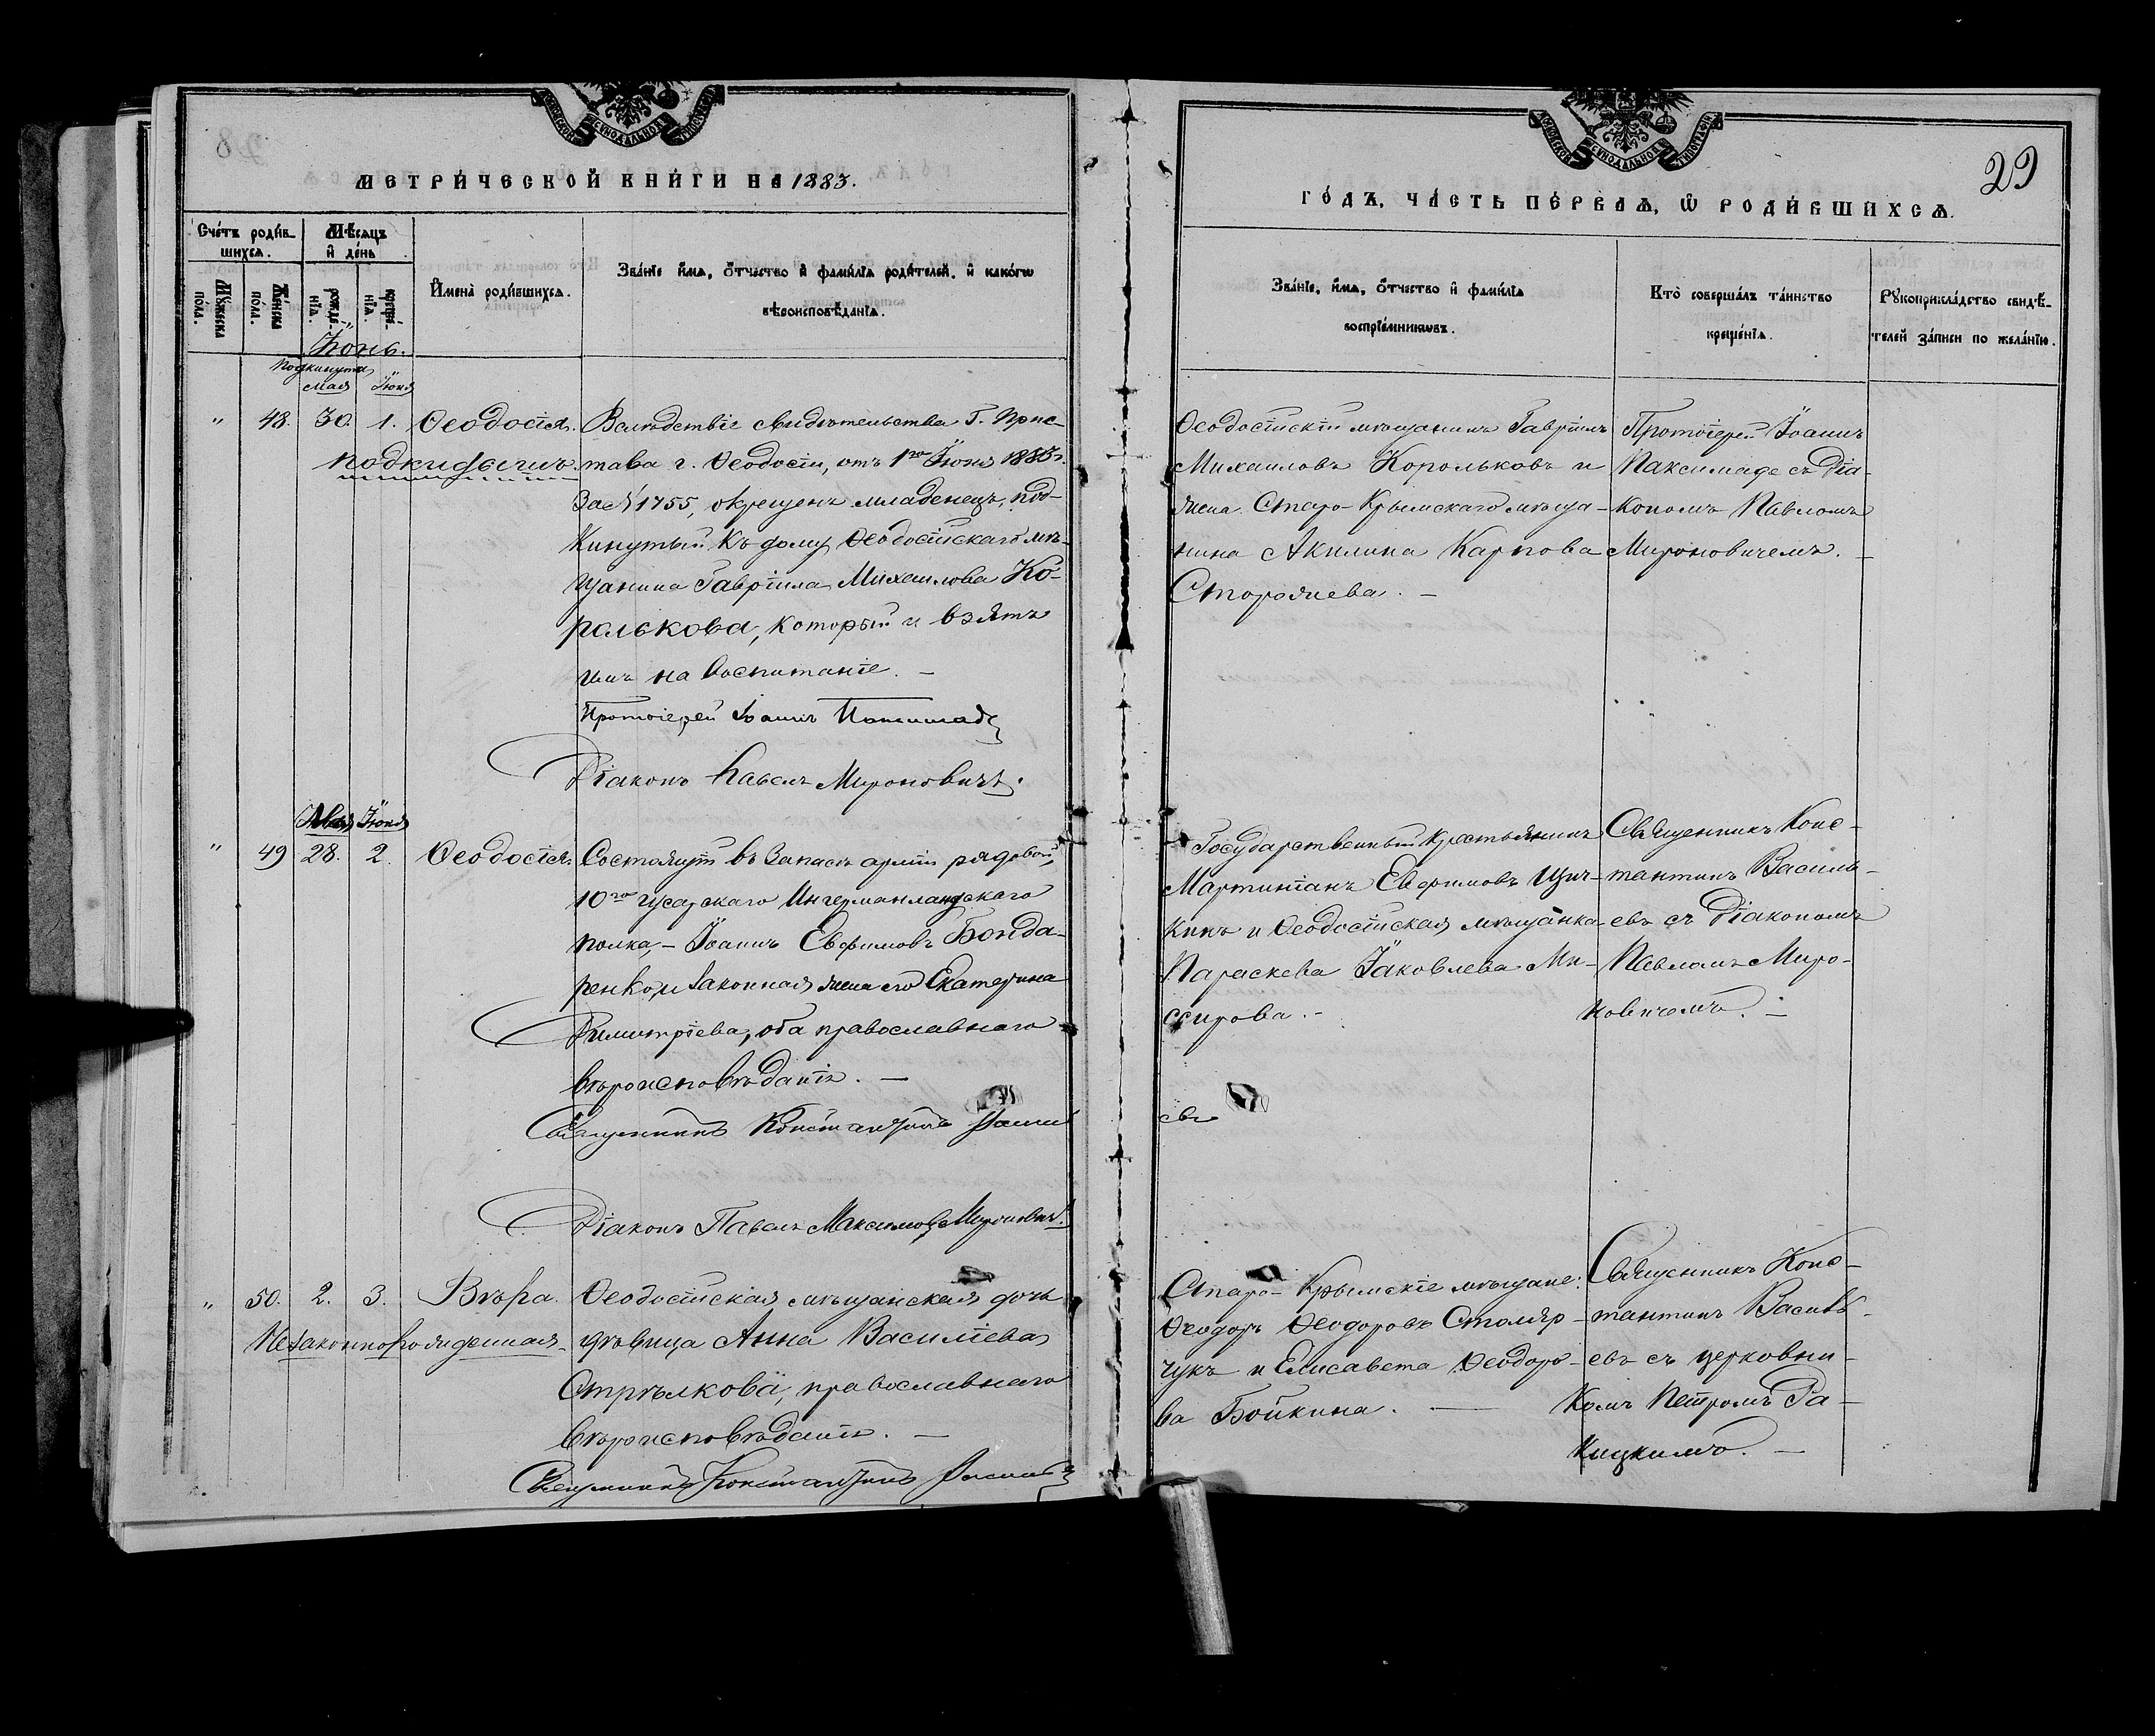 МЕТРИ́ЧЕСКОЙ КНИ́ГИ НА 1883.
Сче́тъ роди́в-
шихсѧ.
Мѣ́сѧцъ
и҆ де́нь
Мꙋ́жеска по́ла.
Же́нска по́ла.
рожде́-нїѧ.
креще́-нїѧ.
И҆мена̀ роди́вшихсѧ.
Зва́нїе и҆́мѧ, ѻ҆́тчество и҆ фами́лїѧ роди́телей, и҆ како́гѡ
вѣроисповѣ́данїѧ.
Іюнь.
Подкинута
мая Іюня
" 48. 30. 1. Ѳеодосія. Вслѣдствіе свидѣтельства Г. Прис-
подкидышъ. тава г. Ѳеодосіи, отъ 1го Іюня 1883 г.
За № 1755, окрещенъ младенецъ, под-
кинутый къ дому Ѳеодосійскаго мѣ-
щанина Гавріила Михаилова Ко-
ролькова, который и взятъ
имъ на воспитаніе. —
Протоіерей Іоаннъ Паксимаде
Діаконъ Павелъ Мироновичъ.
Мая Іюня
" 49 28. 2. Ѳеодосія. Состоящій въ Запасѣ арміи рядовой,
10го гусарскаго Ингерманландскаго
полка, — Іоаннъ Евфимовъ Бонда-
ренко, и законная жена его Екатерина
Димитріева, оба православнаго
вѣроисповѣданія. —
Священникъ Константинъ Василь
Діаконъ Павелъ Максимовъ Мироновичъ.
" 50. 2. 3. Вѣра. Ѳеодосійская мѣщанская дочь
Незаконнорожденная. дѣвица Анна Василіева
Стрѣлкова, православнаго
вѣроисповѣданія. —
Священникъ Константинъ Василь
29
ГО́ДЪ, ЧА́СТЬ ПЕ́РВАѦ, Ѽ РОДИ́ВШИХСѦ.
Зва́нїе, и҆́мѧ, ѻ҆́тчество и҆ фами́лїѧ
воспрїе́мникѡвъ.
Кто̀ соверша́лъ та́инство
креще́нїѧ.
Рꙋкоприкла́дство свидѣ́-
телей за́писи по жела́нїю.
Ѳеодосійскій мѣщанинъ Гавріилъ
Михаиловъ Корольковъ и
жена Старо-Крымскаго мѣща-
нина Акилина Карпова
Сторожева. —
Протоіерей Іоаннъ
Паксимаде съ Діа-
кономъ Павломъ
Мироновичемъ. —
Государственный крестьянинъ
Мартиніанъ Евфимовъ
и Ѳеодосійская мѣщанка
Параскева Іаковлева
Священникъ Конс-
тантинъ Василь-
евъ съ Діакономъ
Павломъ Миро-
новичемъ. —
евъ
Старо-Крымскіе мѣщане:
Ѳеодоръ Ѳеодоровъ Столяр-
чукъ и Елисавета Ѳеодоро-
ва Бойкина. —
Священникъ Конс-
тантинъ Василь-
евъ съ церковни-
комъ Петромъ Ра-
кицкимъ. —